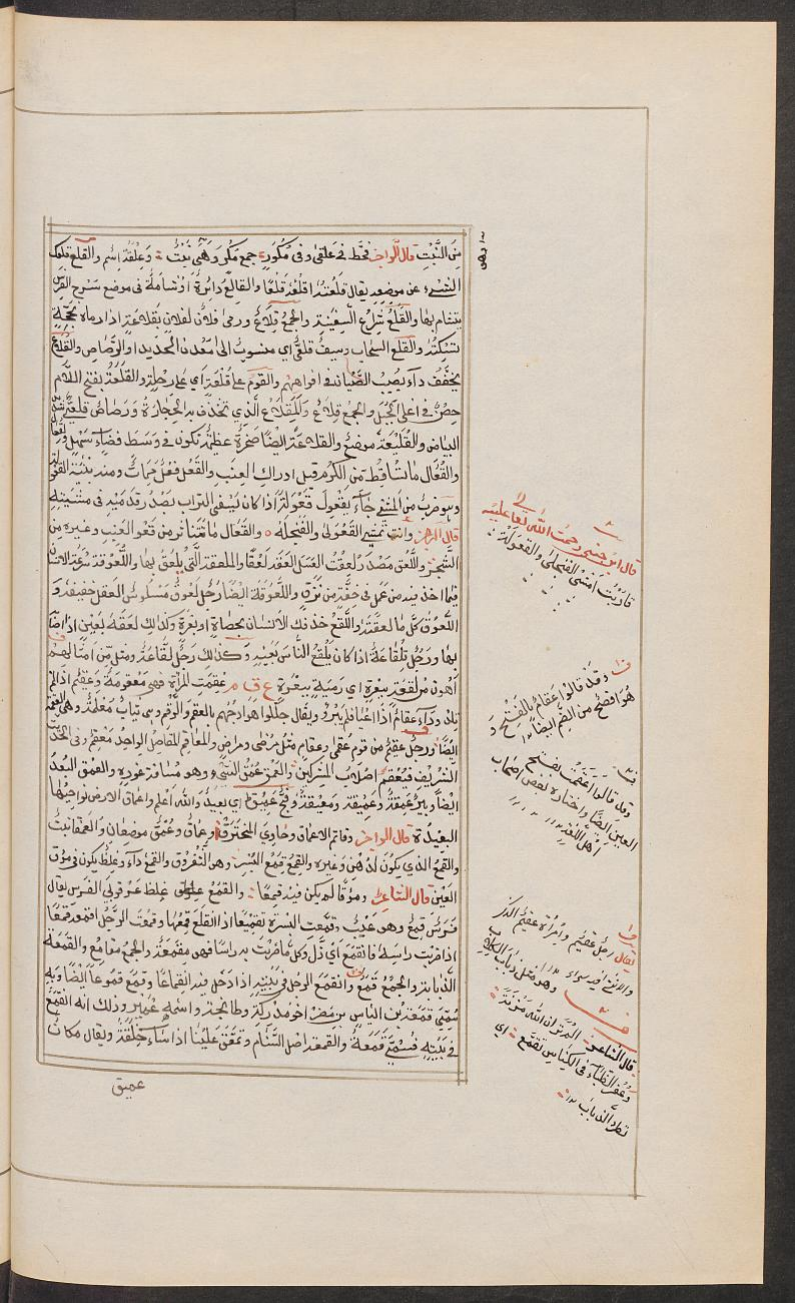 من النبت قال الراجز فحط فى علقى وفى مكور جمع مكر وهى نبت وعلقة اسم والقلع قلعك
الشىء عن موضعه يقال قلعته اقلعه قلعا والقالع دائرة او شامة فى موضع سرج الفرس
يتشام بها والقلع شراع السفينة والجمع قلاع ورمى فلان لفلان بقلاعة اذا رماه بحجة
تسكته والقلع السحاب وسيف قلعى اى منسوب الى معدن الحديد او الرصاص والقلاع
يخفف داء يصيب الصبيان فى افواههم والقوم على قلعة اى على رحلة والقلعة بفتح اللام
حصن فى اعلى الجبل والجمع قلاع والمقلاع الذى تقذف به الحجارة ورصاص قلعى شديد
البياض والقليعة موضع والقلاعة ايضا صخرة عظيمة تكون فى وسط فضاء سهل
والقعال ما تساقط من الكرم قبل ادراك العنب والقعل فعل ممات ومنه بنية القعولة
وهو ضرب من المشى جاء يقعول قعولة اذا كان يسفى التراب بصدر قدميه فى مشيته
قال الراجز وانت تمشى القعولى والفنجله والقعال ما تناثر من نور العنب وغيره من
الشجر واللعق مصدر لعقت العسل العقه لعقا والملعقة التى يلعق بها واللعوقة سرعة الانسان
فيما اخذ فيه من عمل فى خفة من نزق واللعوقة ايضا رجل لعوق مسلوس العقل خفيفه و
اللعوق كل ما لعقته واللقع خذفك الانسان بحصاة او بعرة وكذلك لقعه بعين اذا اصابه
بها ورجل تلقاعة اذا كان يلقع الناس بعينه وكذلك رجل لقاعة ومثل من امثالهم
اهون من لقعة ببعرة اى رمية ببعرة ع ق م عقمت المرأة فهى معقومة وعقيم اذا لم
تلد وداء عقام اذا اعيا فلم يبرء ويقال جللوا هوادجهم بالعقم والرقم وهى ثياب معلمة وهى العقمة
ايضا ورجل عقيم من قوم عقمى وعقام مثل مرضى ومراض والمعاقم المفاصل الواحد معقم وفى الحديث
الشريف فتعقم اصلاب المشركين والعمق عمق الشىء وهو مسافة غوره والعمق البعد
ايضا وبئر عميقة وعميقة ومعيقة وفج عميق اى بعيد والله اعلم واعماق الارض نواحيها
البعيدة قال الراجز وقاتم الاعماق وحاوى المخترق وعماق وعمق موضعان والعمقى نبت
والقمع الذى يكون للدهن وغيره والقمع قمع البسر وهو الثفروق والقمع داء وغلظ يكون فى موق
العين قال الشاعر وموقا لم يكن فيه قمعا والقمع غلظ عرقوبى الفرس يقال
فرس قمع وهو عيب وقمعت البسرة تقميعا اذا انقلع قمعها وقمعت الرجل اقمعه قمعا
اذا ضربت راسه فانقمع اى ذل وكل ما ضربت به راسا فهى مقمعة والجمع مقامع والقمعة
الذبابة والجمع قمع وانقمع الرجل فى بيته اذا دخل فيه انقماعا وقمع قموعا ايضا وبه
سمى قمعة بن الياس بن مضر اخو مدركة وطابخة واسمه عمير وذلك انه انقمع
فى بيته فسمى قمعة والقمعة اصل السنام وتمعق علينا اذا ساء خلقه ويقال مكان
عميق
قال ابن حبيب رحمت الله تعا عليه
قاربت امشى الفنجلى والقعوله
وقد قالوا عقام بالفتح و
هو افصح من الضم ايضا
وقد قالوا عقمت بفتح
العين ايضا واختاره بعض اصحاب
اهل اللغة
يقال رجل عقيم وامرأة عقيم الذكر
والانثى فيه سواء
وهو مثل ذباب الكلاب
قال الشاعر الم تر ان الله انزل مزنه
وعفر الظباء فى الكناس تقمع اى
تطرد الذباب